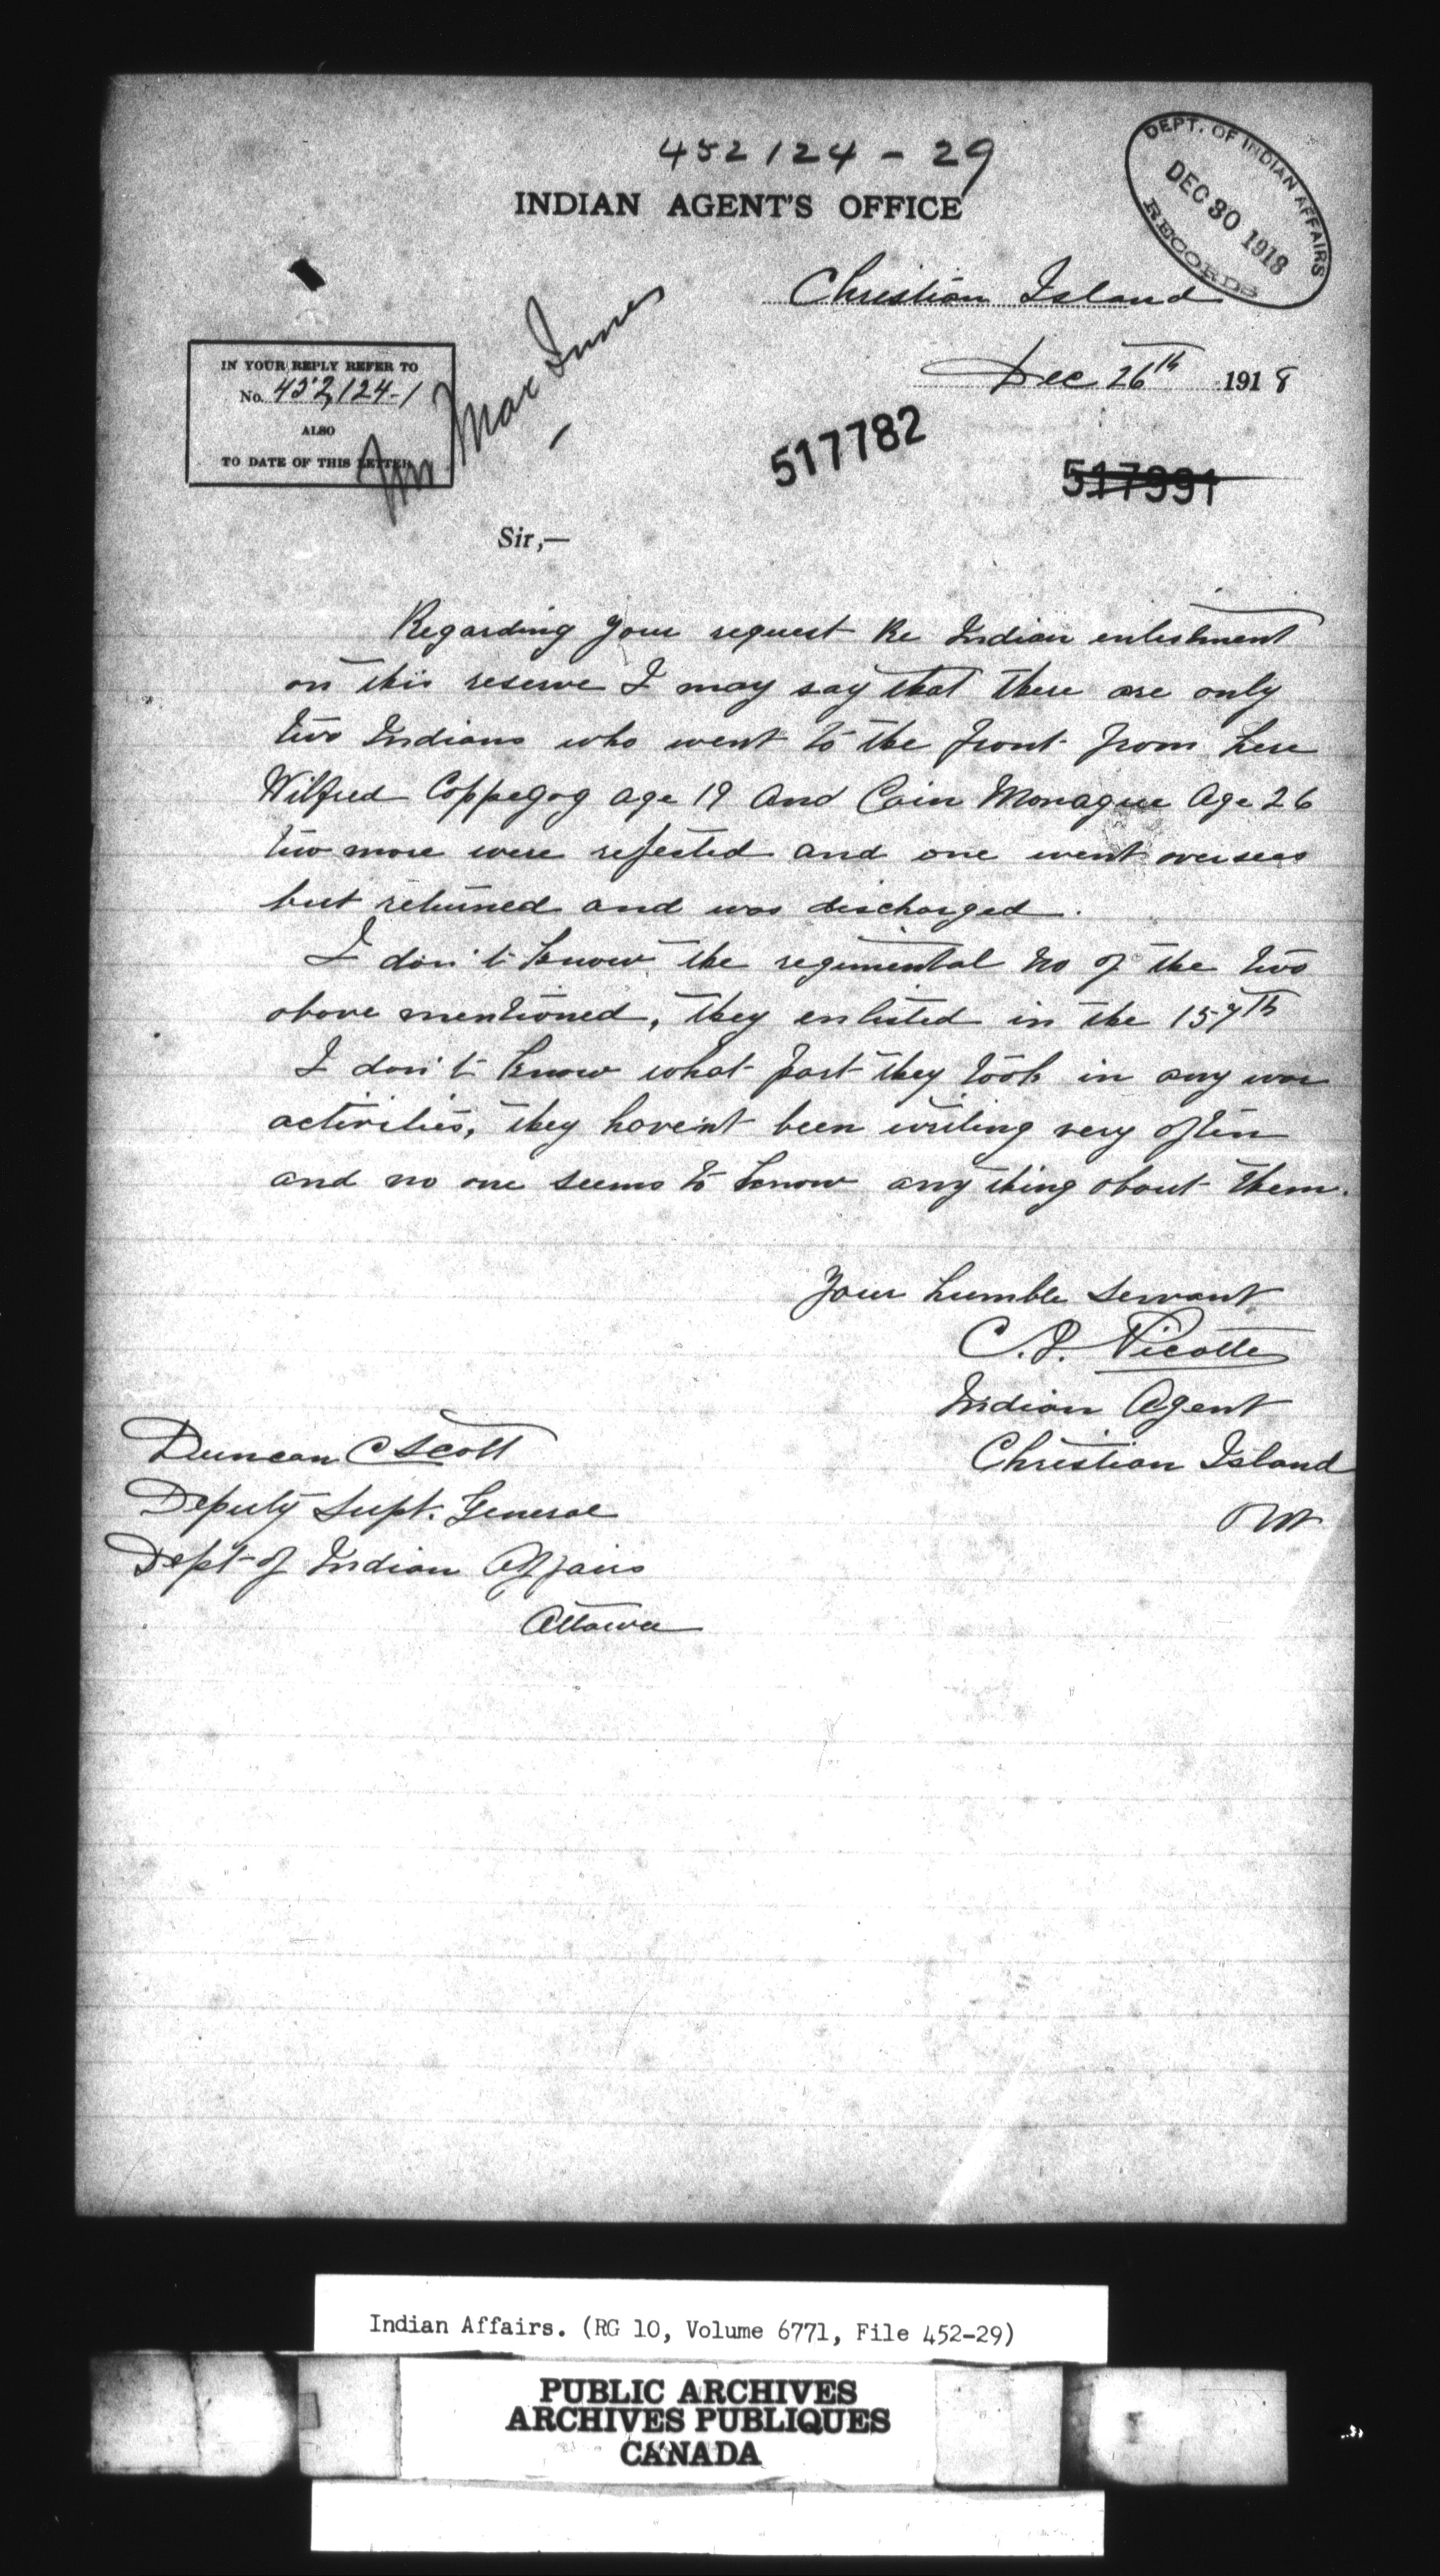 452124 - 29
INDIAN AGENT'S OFFICE
DEPT. OF INDIAN AFFAIRS
DEC 30 1918
RECORDS
Christian Island
Dec 26th 1918
IN YOUR REPLY REFER TO
No. 452,124-1
ALSO
TO DATE OF THIS LETTER
Mr. Mac Innes
517782
517991
Sir,—
Regarding your request Re Indian enlistment
on this reserve I may say that there are only
two Indians who went to the front from here
Wilfred Coppegog age 19 and Cain Monague Age 26
two more were rejected and one went overseas
but returned and was discharged.
I don't know the regimental no of the two
above mentioned, they enlisted in the 157th
I don't know what part they took in any war
activities, they haven't been writing very often
and no one seems to know any thing about them.
Your humble servant
C.J. Picotte
Indian Agent
Christian Island
Ont
Duncan C Scott
Deputy Supt. General
Dept of Indian Affairs
Ottawa
Indian Affairs. (RG 10, Volume 6771, File 452-29)
PUBLIC ARCHIVES
ARCHIVES PUBLIQUES
CANADA